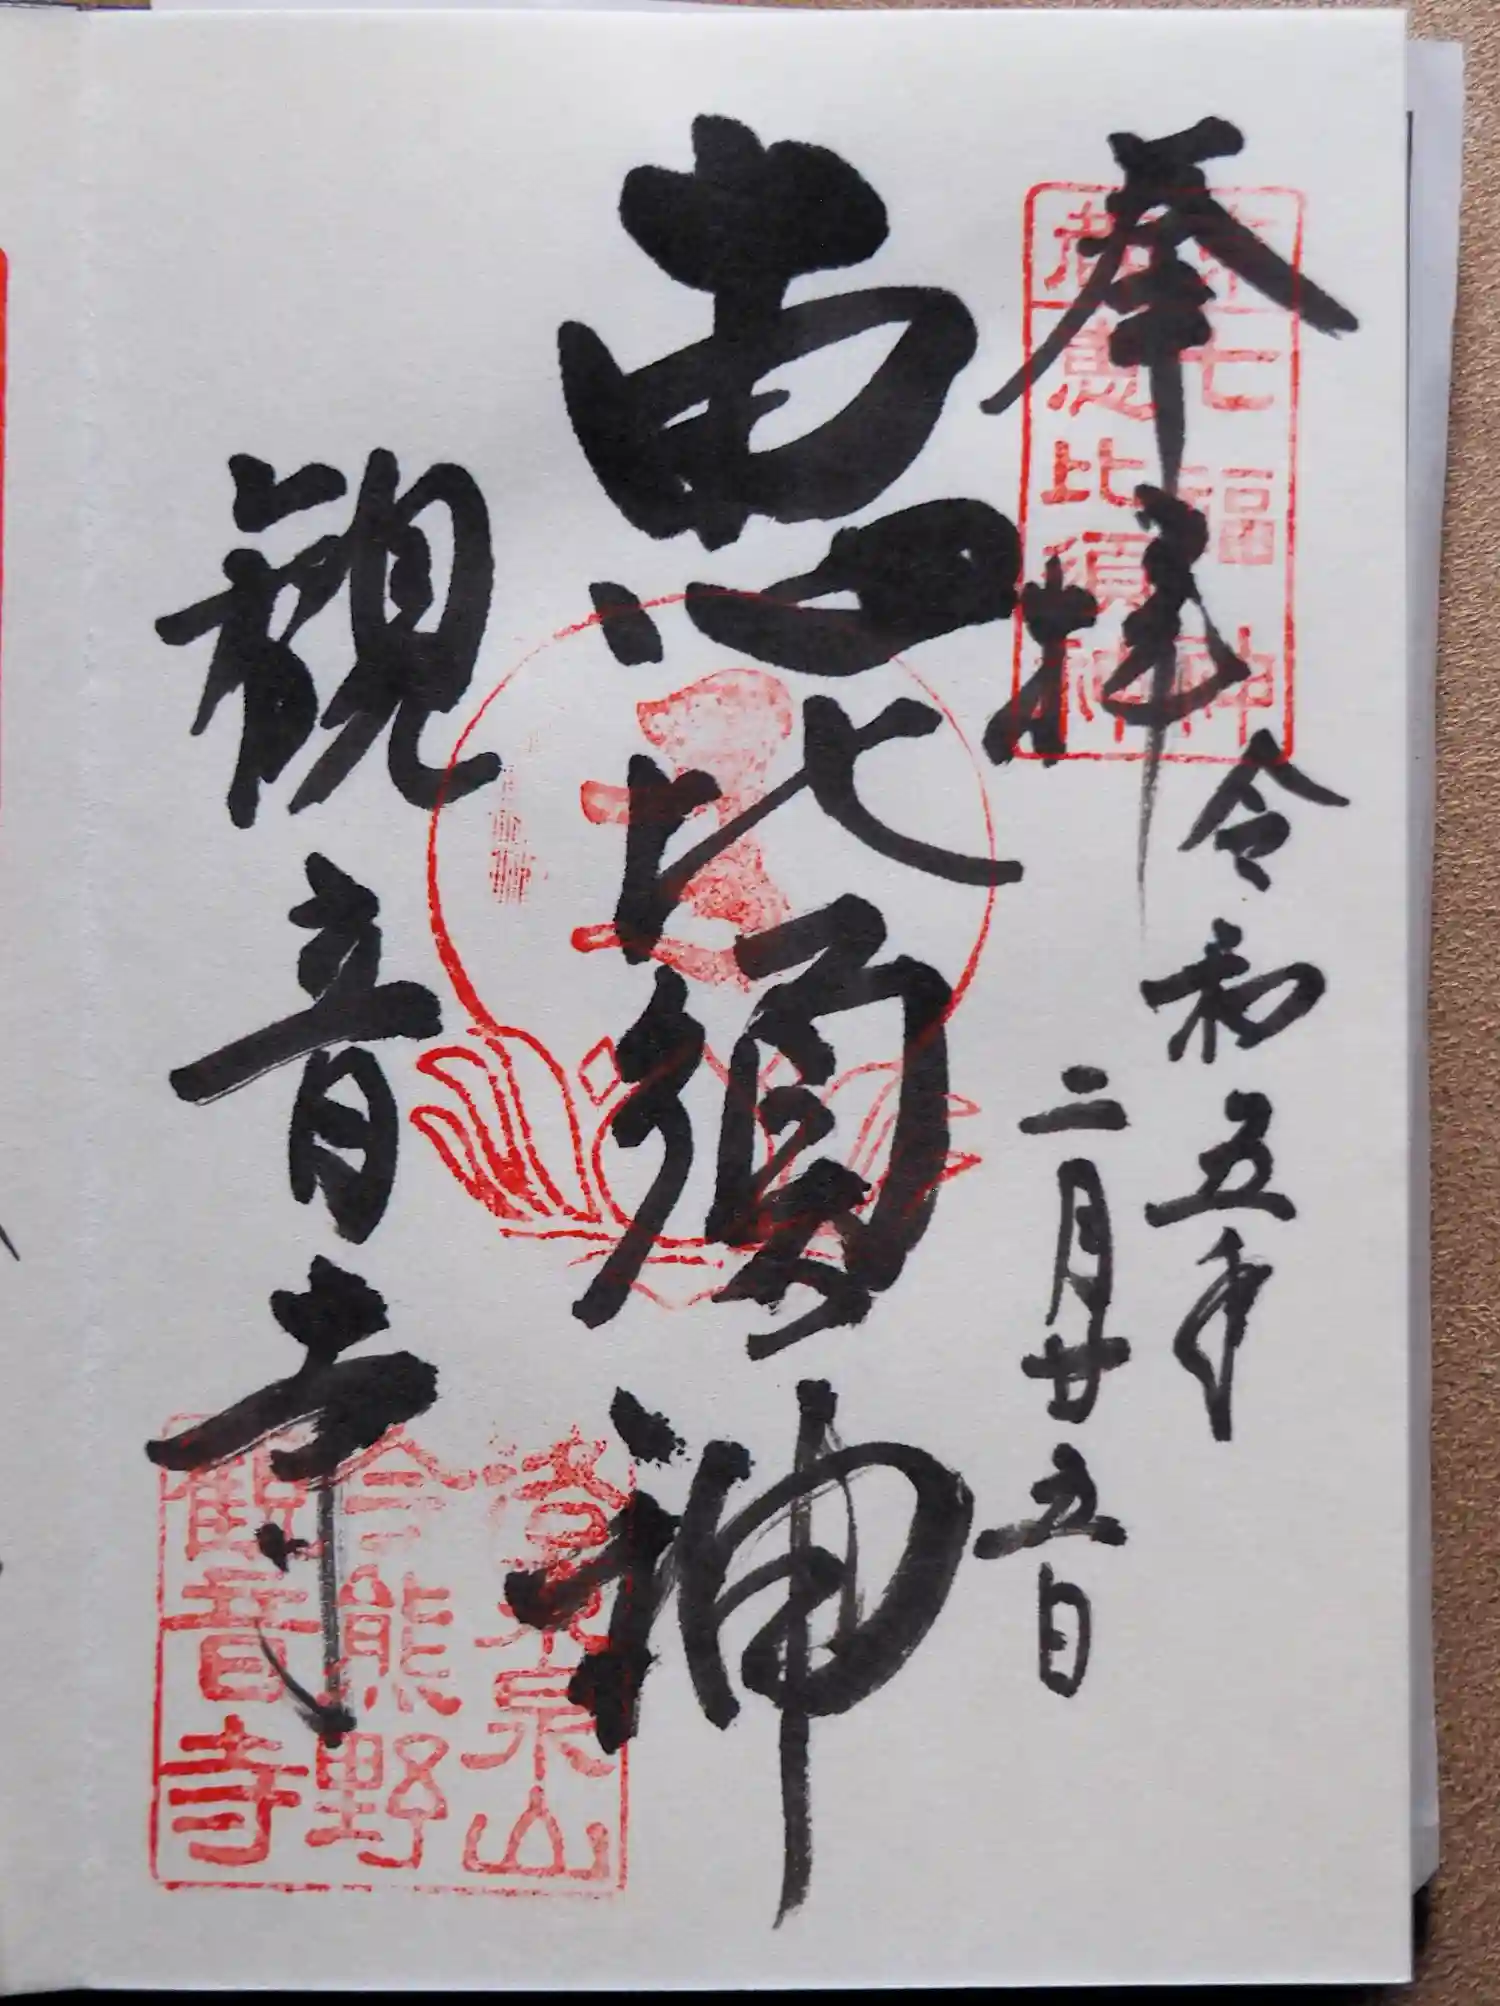 奉拝
七福神
恵比須神
令和五年
二月廿五日
恵比須神
観音寺
洛東泉山
今熊野
観音寺